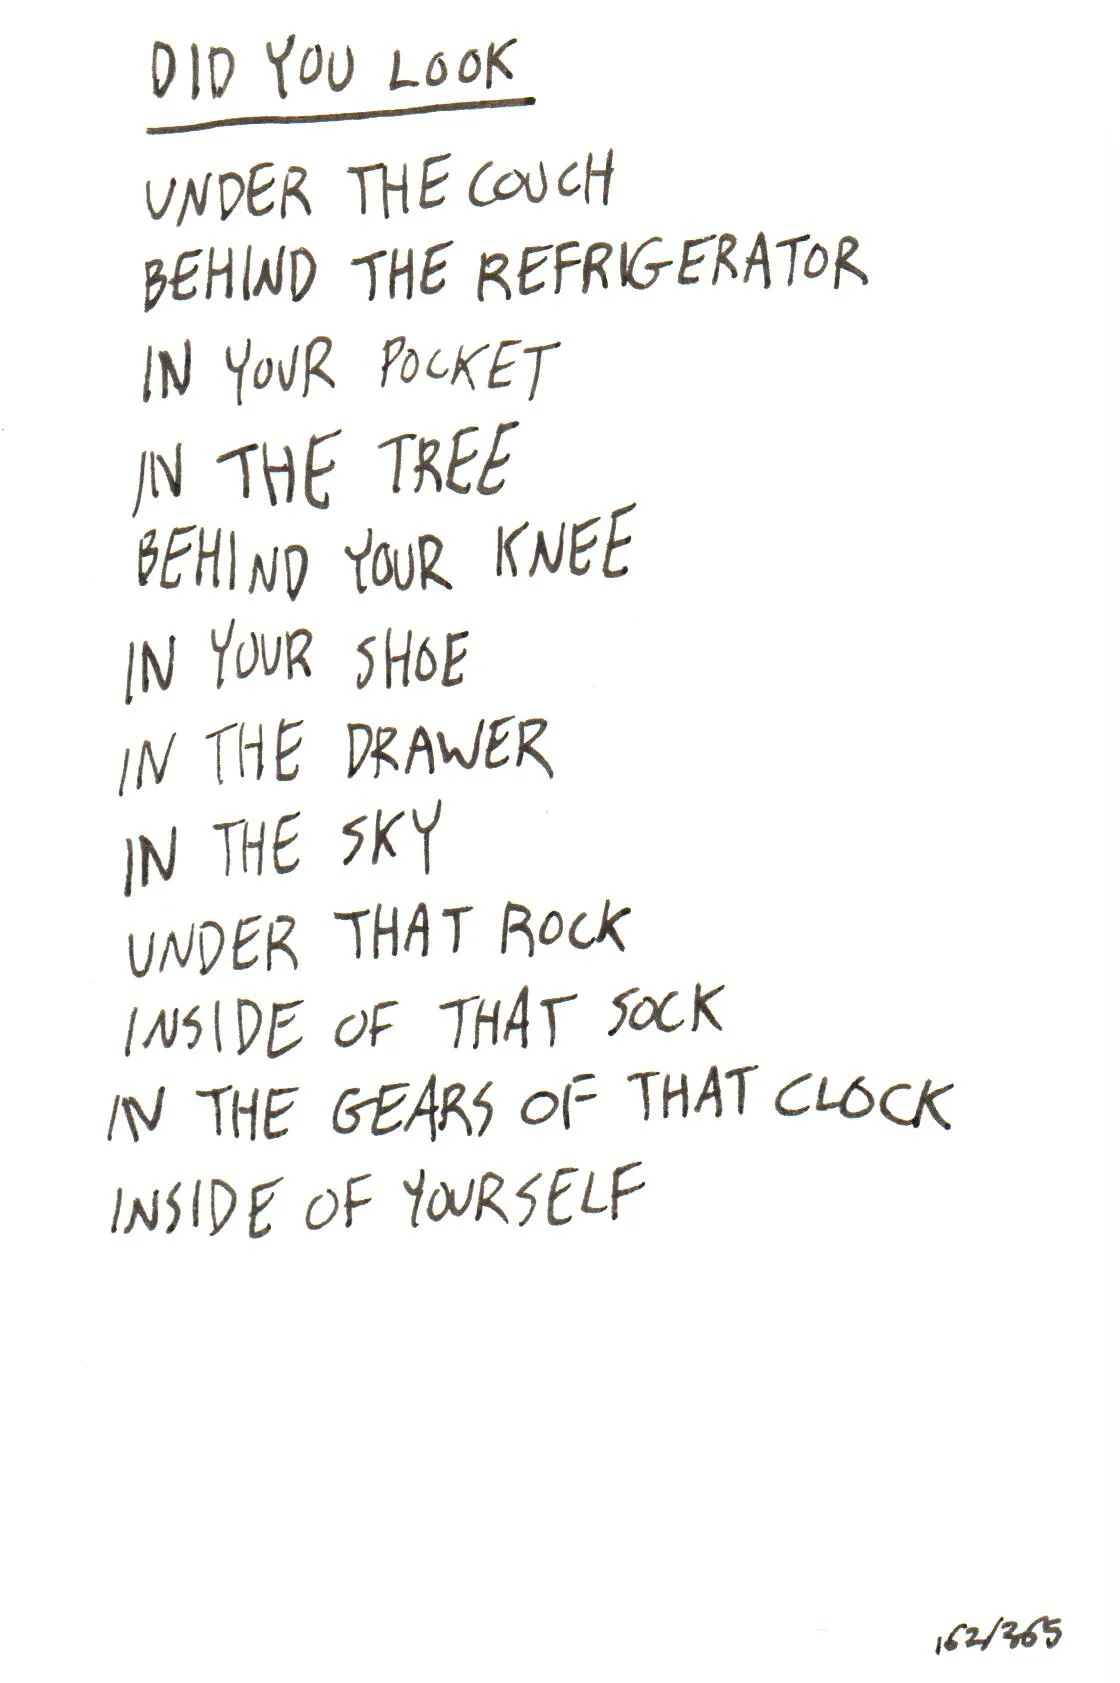 DID YOU LOOK
UNDER THE COUCH
BEHIND THE REFRIGERATOR
IN YOUR POCKET
IN THE TREE
BEHIND YOUR KNEE
IN YOUR SHOE
IN THE DRAWER
IN THE SKY
UNDER THAT ROCK
INSIDE OF THAT SOCK
IN THE GEARS OF THAT CLOCK
INSIDE OF YOURSELF
162/365